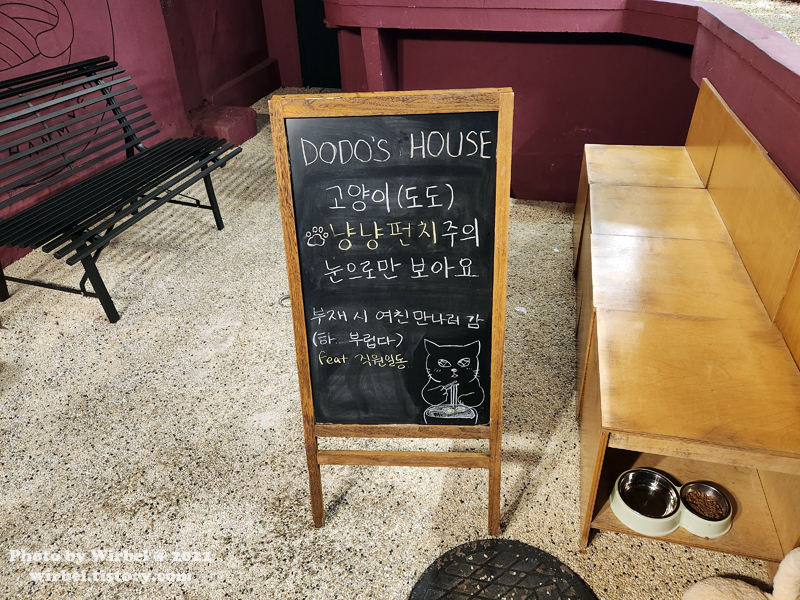 DODO'S HOUSE
고양이(도도)
냥냥펀치주의
눈으로만 보아요
부재 시 여친 만나러 감
(하.. 부럽다)
feat 직원일동
Photo by Wirbel @ 2022
wirbel.tistory.com